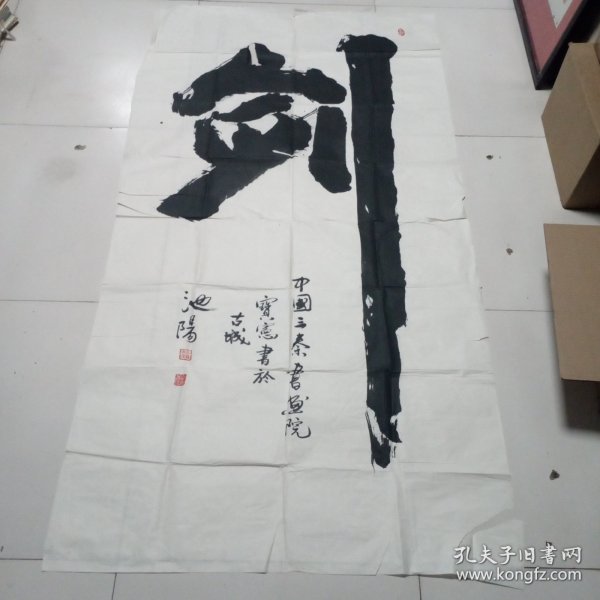 剑
中國三秦書画院
寶憲書於
古城
池陽
孔夫子旧书网
www.kongfz.com